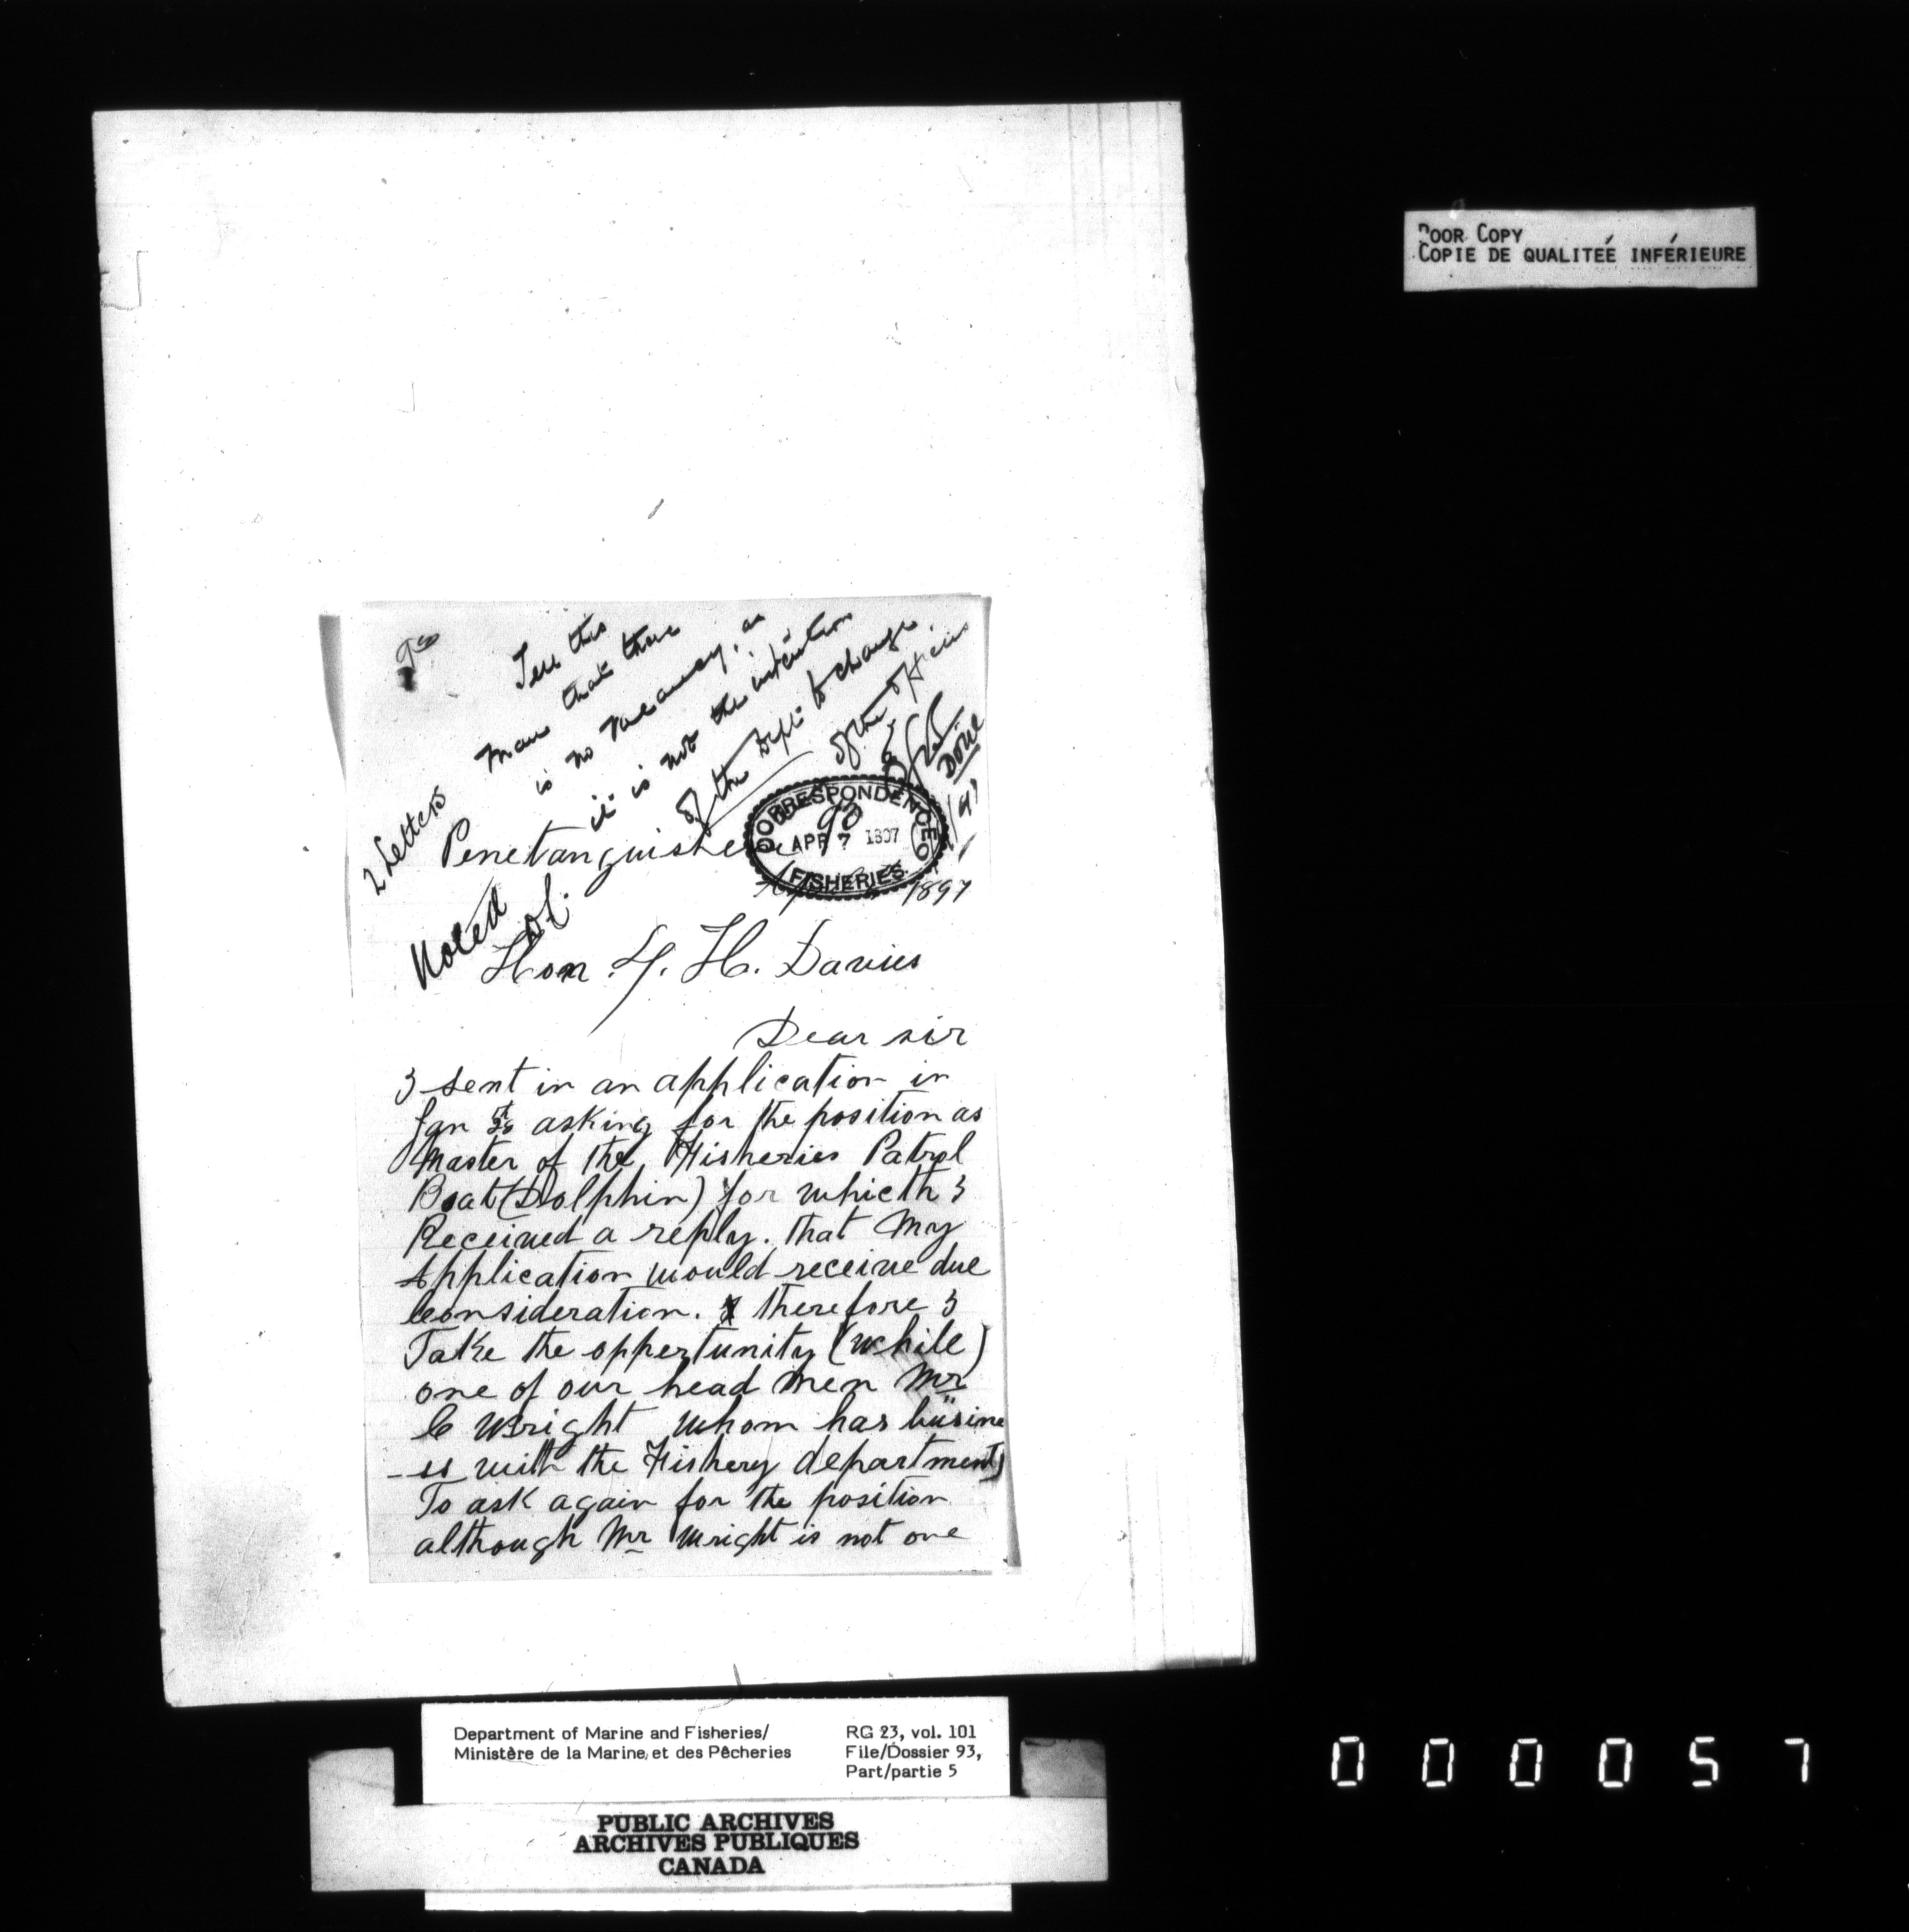 POOR COPY
COPIE DE QUALITEÉ INFÉRIEURE
Tell this
man that there
is no vacancy, as
it is not the intention
of the Dept. to change
of the officers
Done
2 Letters
Noted
Penetanguishene
CORRESPONDENCE
93
APR 7 1897
FISHERIES
1897
Hon. L. H. Davies
Dear sir
I sent in an application in
Jan asking for the position as
Master of the Fisheries Patrol
Boat (Dolphin) for whicth I
Received a reply. that my
Application would receive due
Consideration. therefore I
Take the oppertunity (while)
one of our head men Mr
C Wright whom has busine
-ss with the Fishery department)
To ask again for the position
although Mr Wright is not one
Department of Marine and Fisheries/ RG 23, vol. 101
Ministère de la Marine et des Pêcheries File/Dossier 93,
Part/partie 5
PUBLIC ARCHIVES
ARCHIVES PUBLIQUES
CANADA
000057